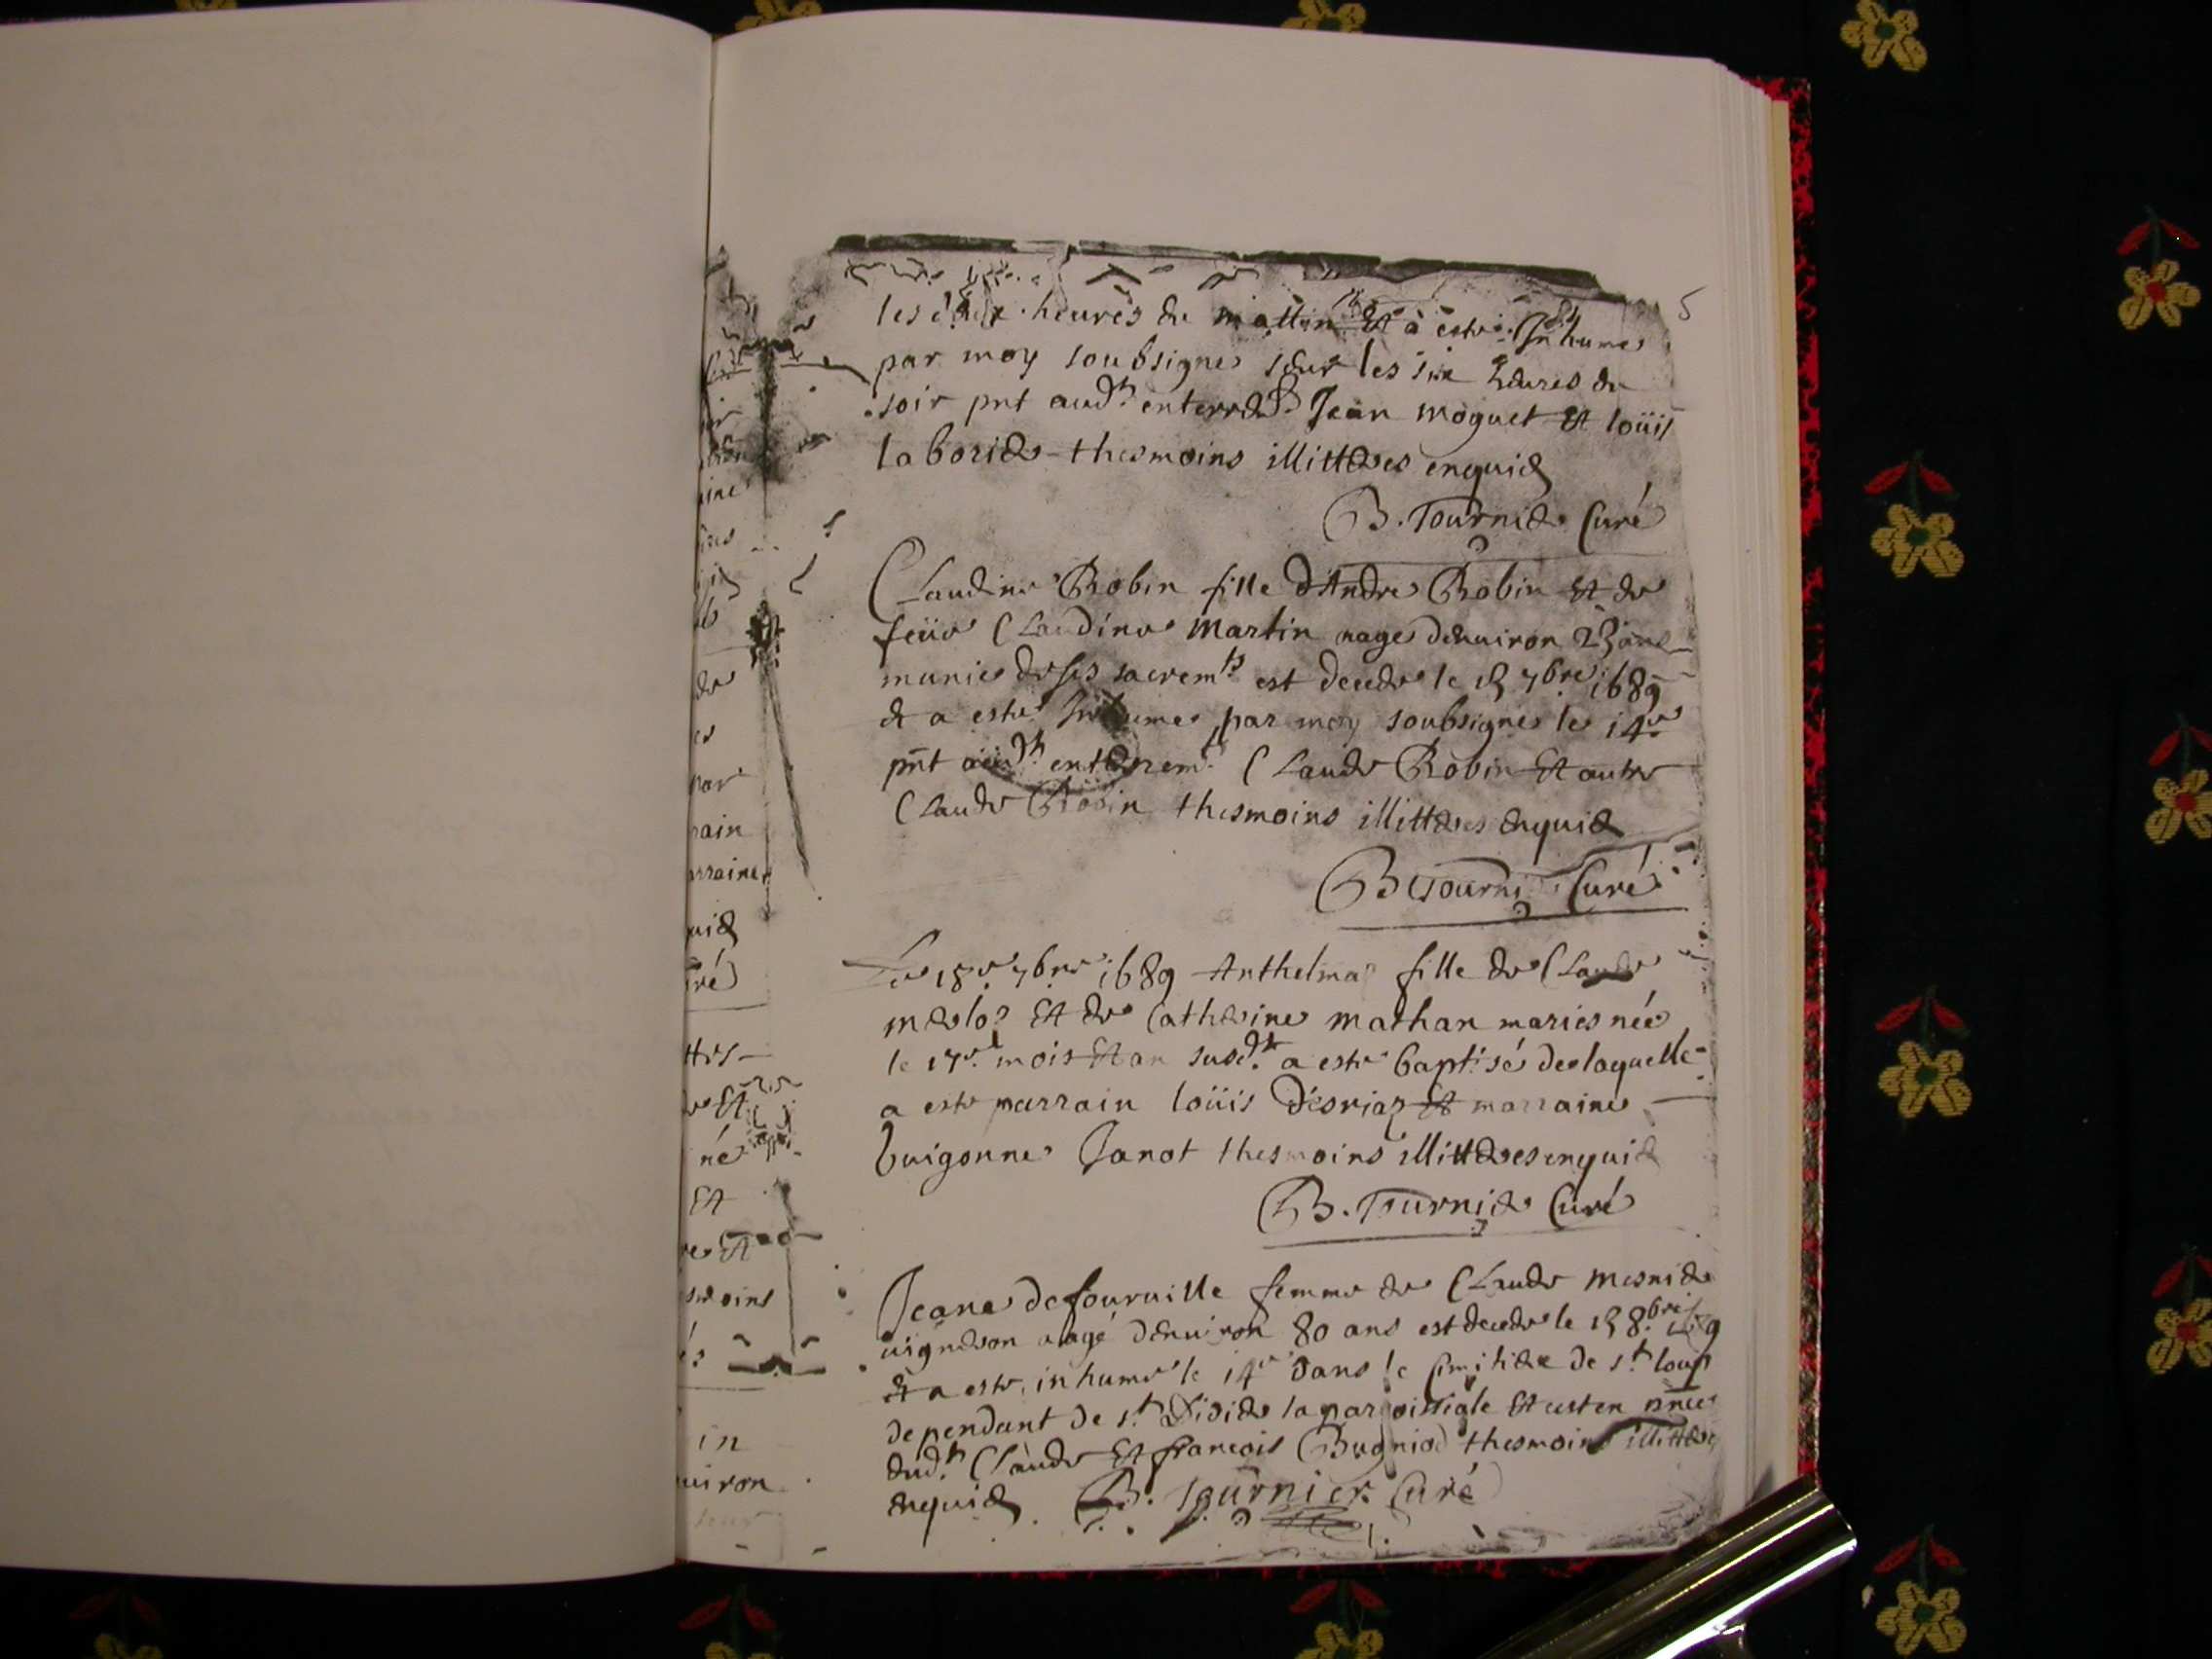 5
les deux heures du mattin Et à esté Inhumé
par moy soubsigné sur les six heures du
soir pnt aud.t enterrem.t Jean moguet Et loüis
laborier thesmoins illitteres enquis
B. Tournier Curé
Claudine Robin fille d'André Robin Et de
feüe Claudine Martin aagé denuiron 23 ans
munie de ses sacrem.ts est decedé le 13 7bre 1689
Et a esté Inhumé par moy soubsigné le 14e
pnt aud.t enterrem.t Claude Robin Et autre
Claude Robin thesmoins illitteres enquis
B Tournier Curé
Le 18e 7bre 1689 Anthelma fille de Claude
merlo Et de Catherine mathan mariés née
le 17e mois Et an susd.t a esté baptisé de laquelle
a esté parrain loüis Desriaz Et marraine
guigonne Janot thesmoins illitteres enquis
B. Tournier Curé
Jeane defouruille femme de Claude mesnier
uigneron aagé denuiron 80 ans est decedé le 13 8bre 1689
Et a esté inhumé le 14e dans le Cimitiere de s.t loup
dependant de s.t Didier la paroissiale Et cest en pnce
dud.t Claude Et francois Bugniod thesmoins illitteres
enquis. B. Tournier Curé
uiron
in
arraine
rain
par
Et
né
ré